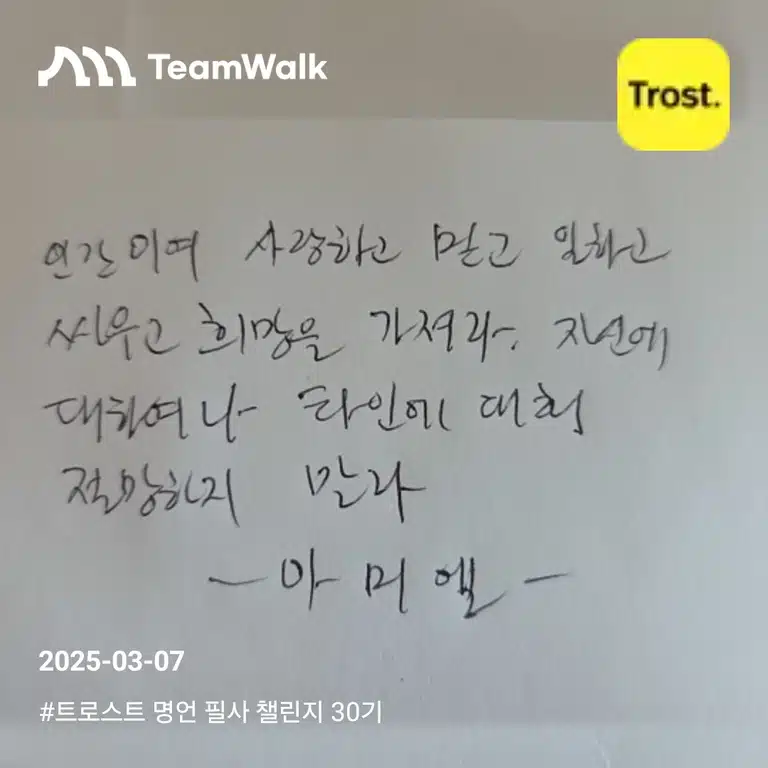 TeamWalk
Trost.
인간이여 사랑하고 믿고 일하고
싸우고 희망을 가져라. 자신에
대하여나 타인에 대해
절망하지 말라
- 아미엘 -
2025-03-07
#트로스트 명언 필사 챌린지 30기